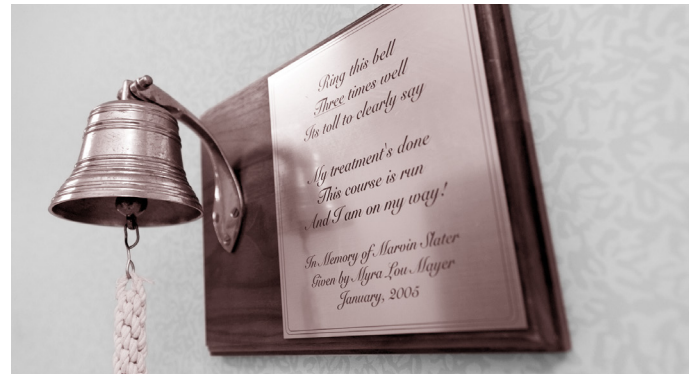 Ring this bell
Three times well
Its toll to clearly say
My treatment's done
This course is run
And I am on my way!
In Memory of Marvin Slater
Given by Myra Lou Mayer
January, 2005